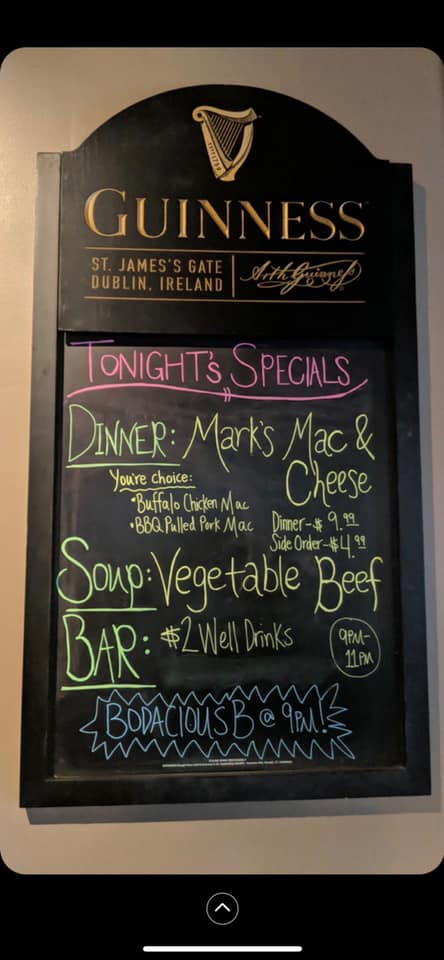 GUINNESS
ST. JAMES'S GATE
DUBLIN, IRELAND
Arth Guinness
TONIGHT'S SPECIALS
DINNER: Mark's Mac &
Cheese
You're choice:
•Buffalo Chicken Mac
•BBQ Pulled Pork Mac
Dinner-$ 9.99
Side Order-$4.99
Soup: Vegetable Beef
BAR: $2 Well Drinks
9PM-
11PM
BODACIOUS B @ 9PM!